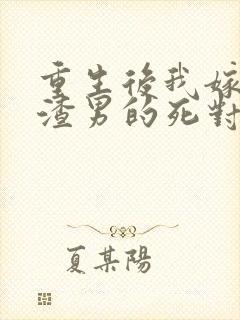 重生後我嫁
渣男的死對
夏某陽